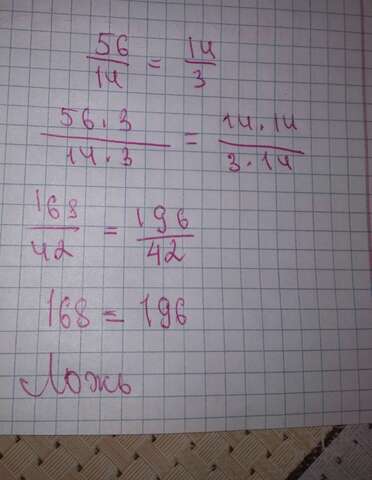 56/14 = 14/3
56·3/14·3 = 14·14/3·14
168/42 = 196/42
168 = 196
Ложь